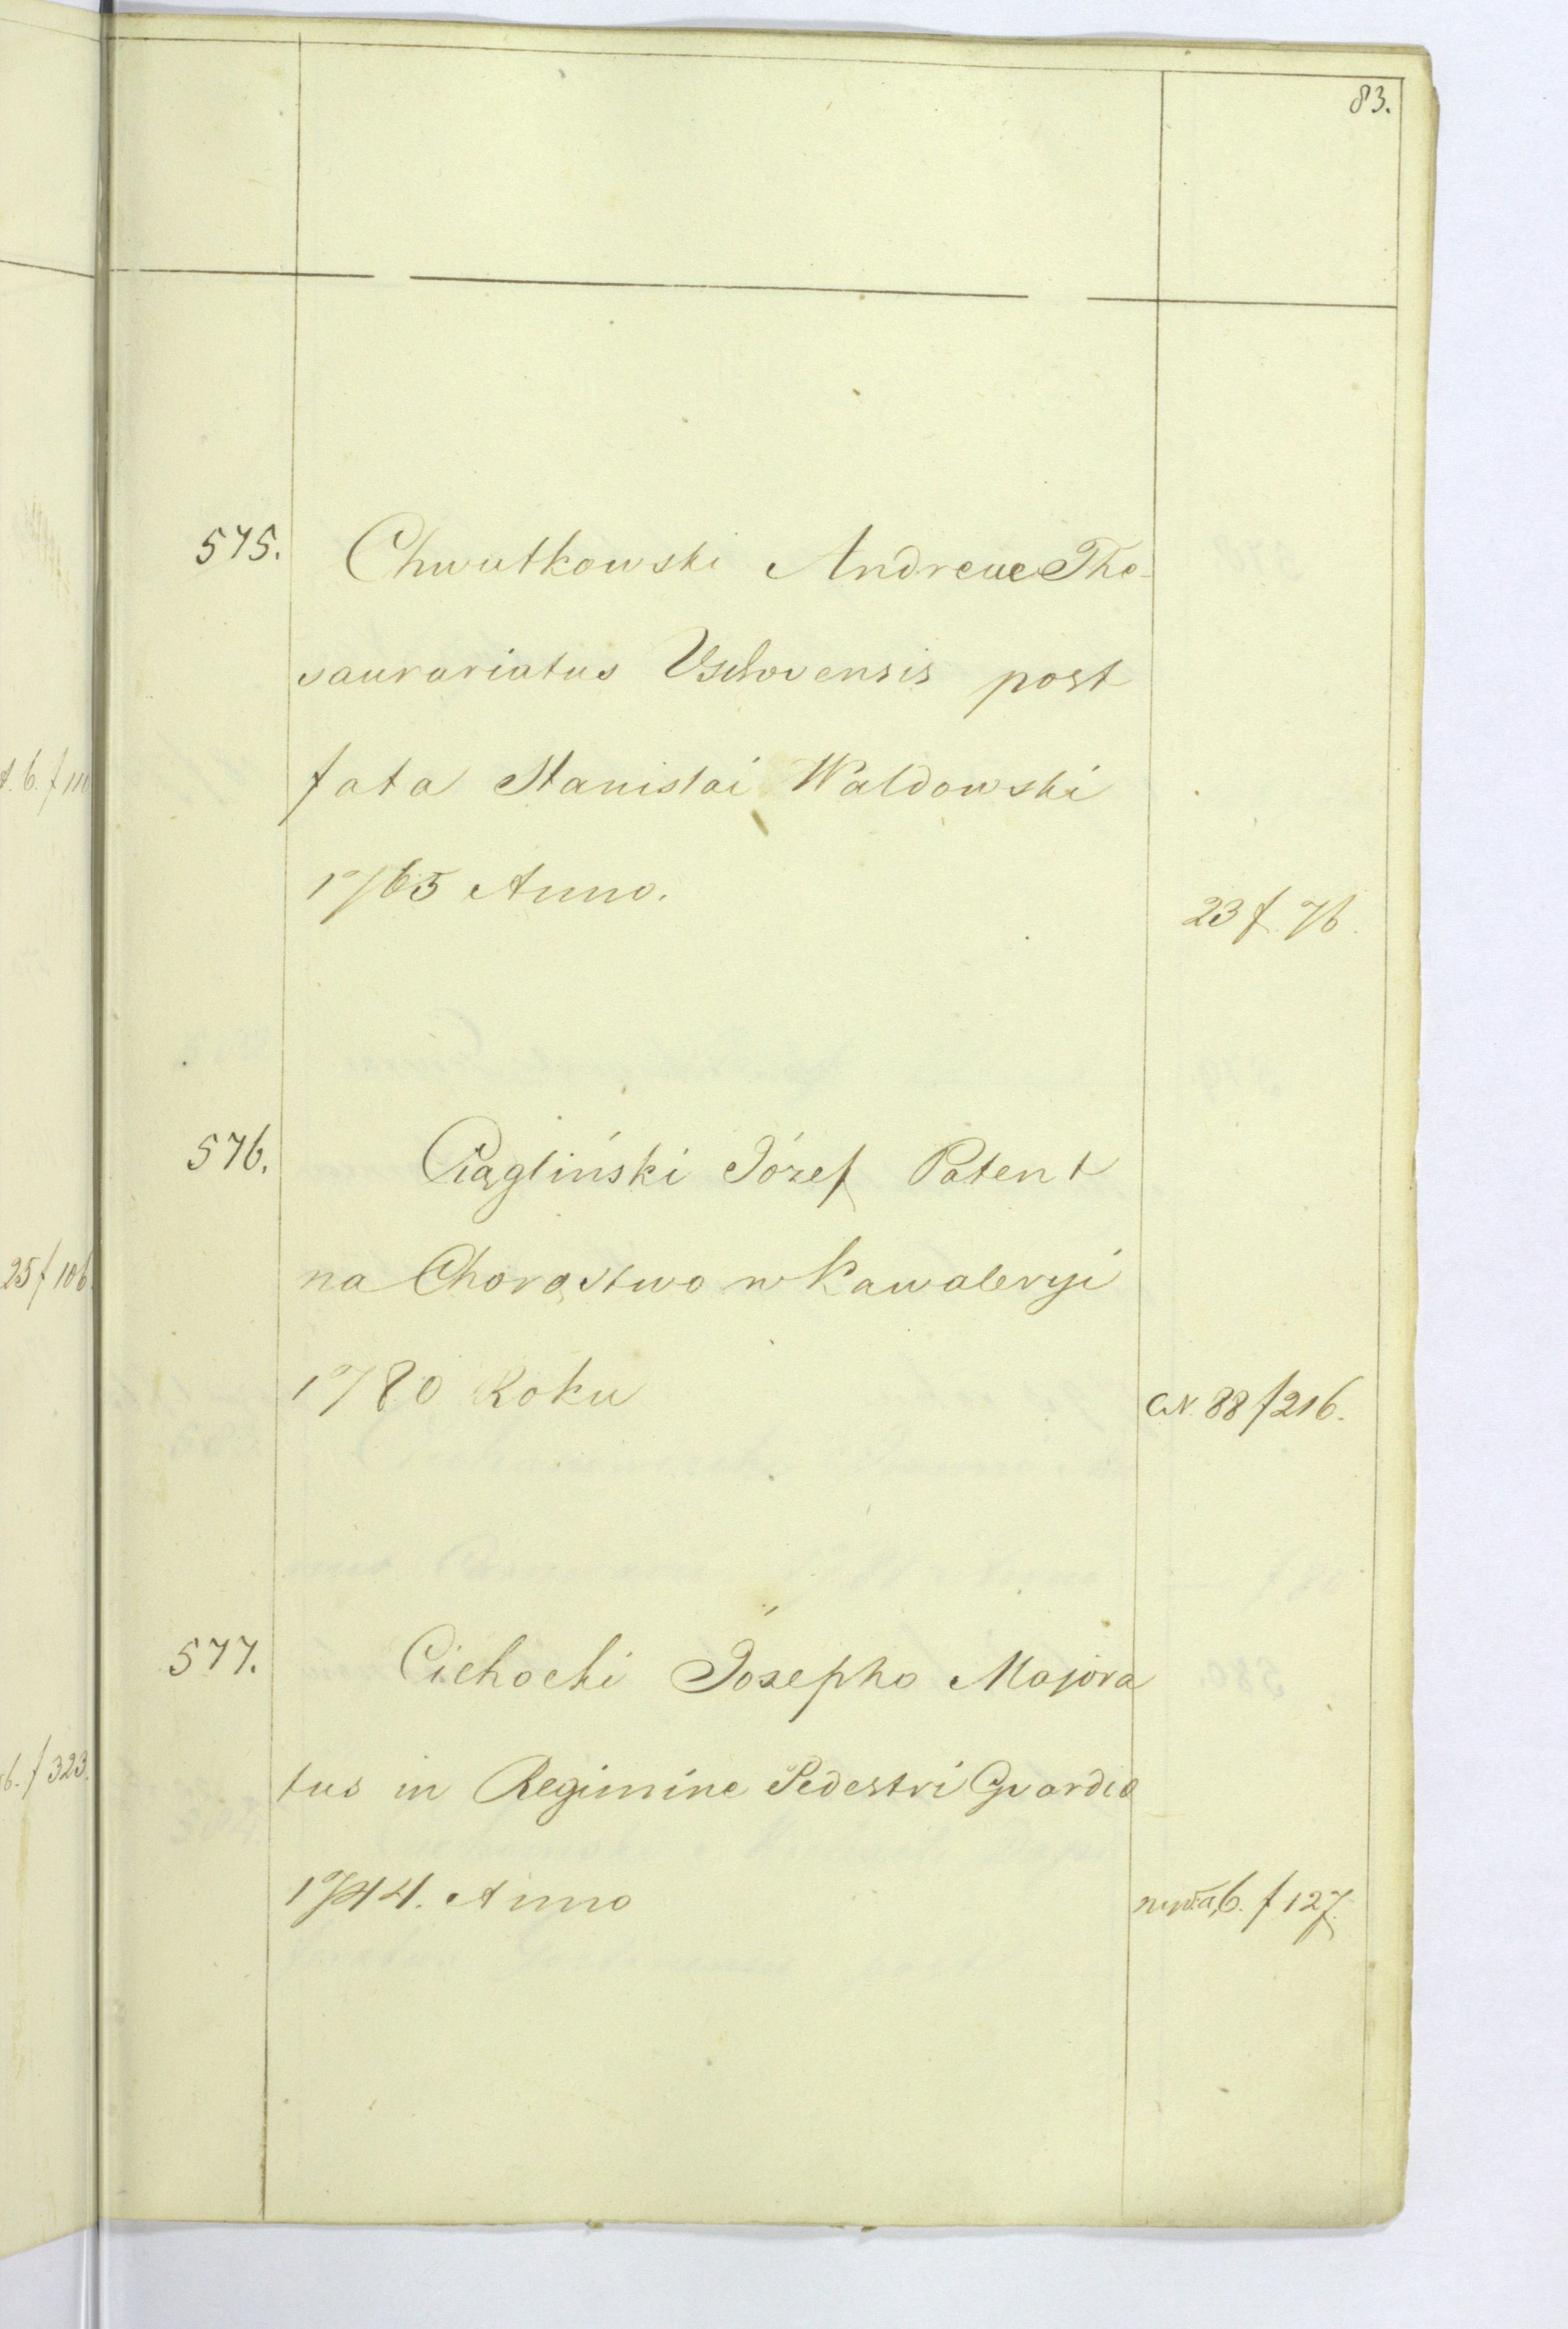 83.
575. Chwatkowski Andreae The-
saurariatus Vschovensis post
fata Stanislai Waldowski
1765 Anno. 23 f. 76.
576. Ciągliński Józef Patent
na Chorąstwo w Kawaleryi
1780 Roku 88 f 216.
577. Cichocki Josepho Majora
tus in Regimine Pedestri Gvardia
1744. Anno 6. f 127.
6. f 110
25 f 106.
6. f 323.